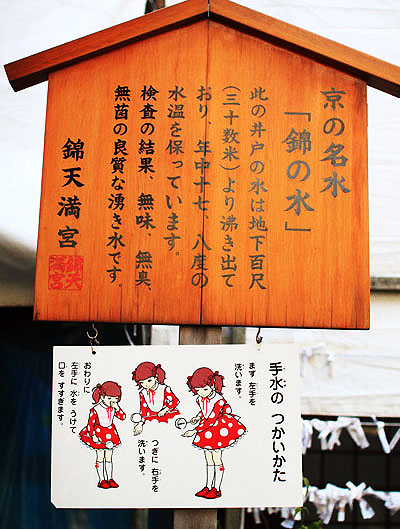 京の名水
「錦の水」
此の井戸の水は地下百尺
(三十数米)より沸き出て
おり、年中十七、八度の
水温を保っています。
検査の結果、無味、無臭、
無菌の良質な湧き水です。
錦天満宮
錦天
満宮
手水の つかいかた
まず 左手を
洗います。
つぎに 右手を
洗います。
おわりに
左手に 水を うけて
口を すすぎます。